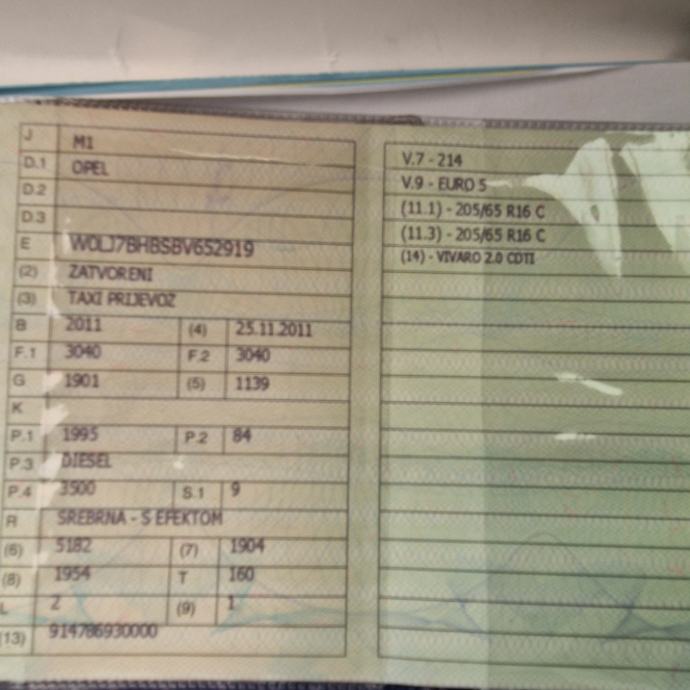 J M1
D.1 OPEL
D.2
D.3
E W0LJ7BHBSBV652919
(2) ZATVORENI
(3) TAXI PRIJEVOZ
B 2011 (4) 25.11.2011
F.1 3040 F.2 3040
G 1901 (5) 1139
K
P.1 1995 P.2 84
P.3 DIESEL
P.4 3500 S.1 9
R SREBRNA - S EFEKTOM
(6) 5182 (7) 1904
(8) 1954 T 160
L 2 (9) 1
(13) 914786930000
V.7 - 214
V.9 - EURO 5
(11.1) - 205/65 R16 C
(11.3) - 205/65 R16 C
(14) - VIVARO 2.0 CDTI